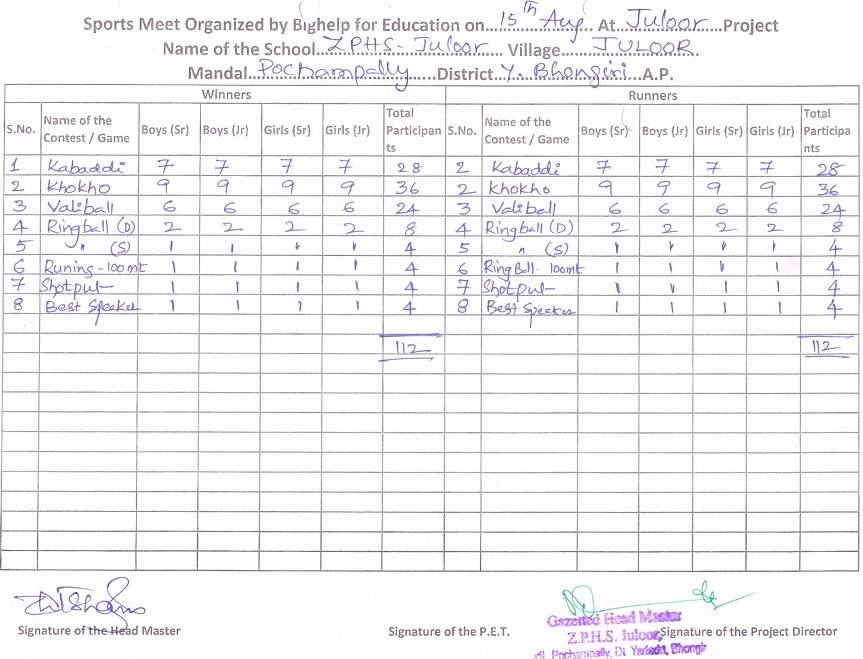 Sports Meet Organized by Bighelp for Education on 15th Aug At Juloor Project
Name of the School ZPHS- Juloor Village JULOOR
Mandal Pochampally District Y. Bhongiri A.P.
Winners Runners
S.No. Name of the Contest / Game Boys (Sr) Boys (Jr) Girls (Sr) Girls (Jr) Total Participants S.No. Name of the Contest / Game Boys (Sr) Boys (Jr) Girls (Sr) Girls (Jr) Total Participants
1 Kabaddi 7 7 7 7 28 2 Kabaddi 7 7 7 7 28
2 Khokho 9 9 9 9 36 2 Khokho 9 9 9 9 36
3 Valiball 6 6 6 6 24 3 Valiball 6 6 6 6 24
4 Ringball (D) 2 2 2 2 8 4 Ringball (D) 2 2 2 2 8
5 " (S) 1 1 1 1 4 5 " (S) 1 1 1 1 4
6 Runing-100mt 1 1 1 1 4 6 Ring Bll- 100mt 1 1 1 1 4
7 Shotput 1 1 1 1 4 7 Shotput 1 1 1 1 4
8 Best Speeker 1 1 1 1 4 8 Best Speeker 1 1 1 1 4
112 112
Gazetted Head Master
Signature of the Head Master Signature of the P.E.T. Z.P.H.S. Juloor, Signature of the Project Director
Pochampally, Dt. Bhongir